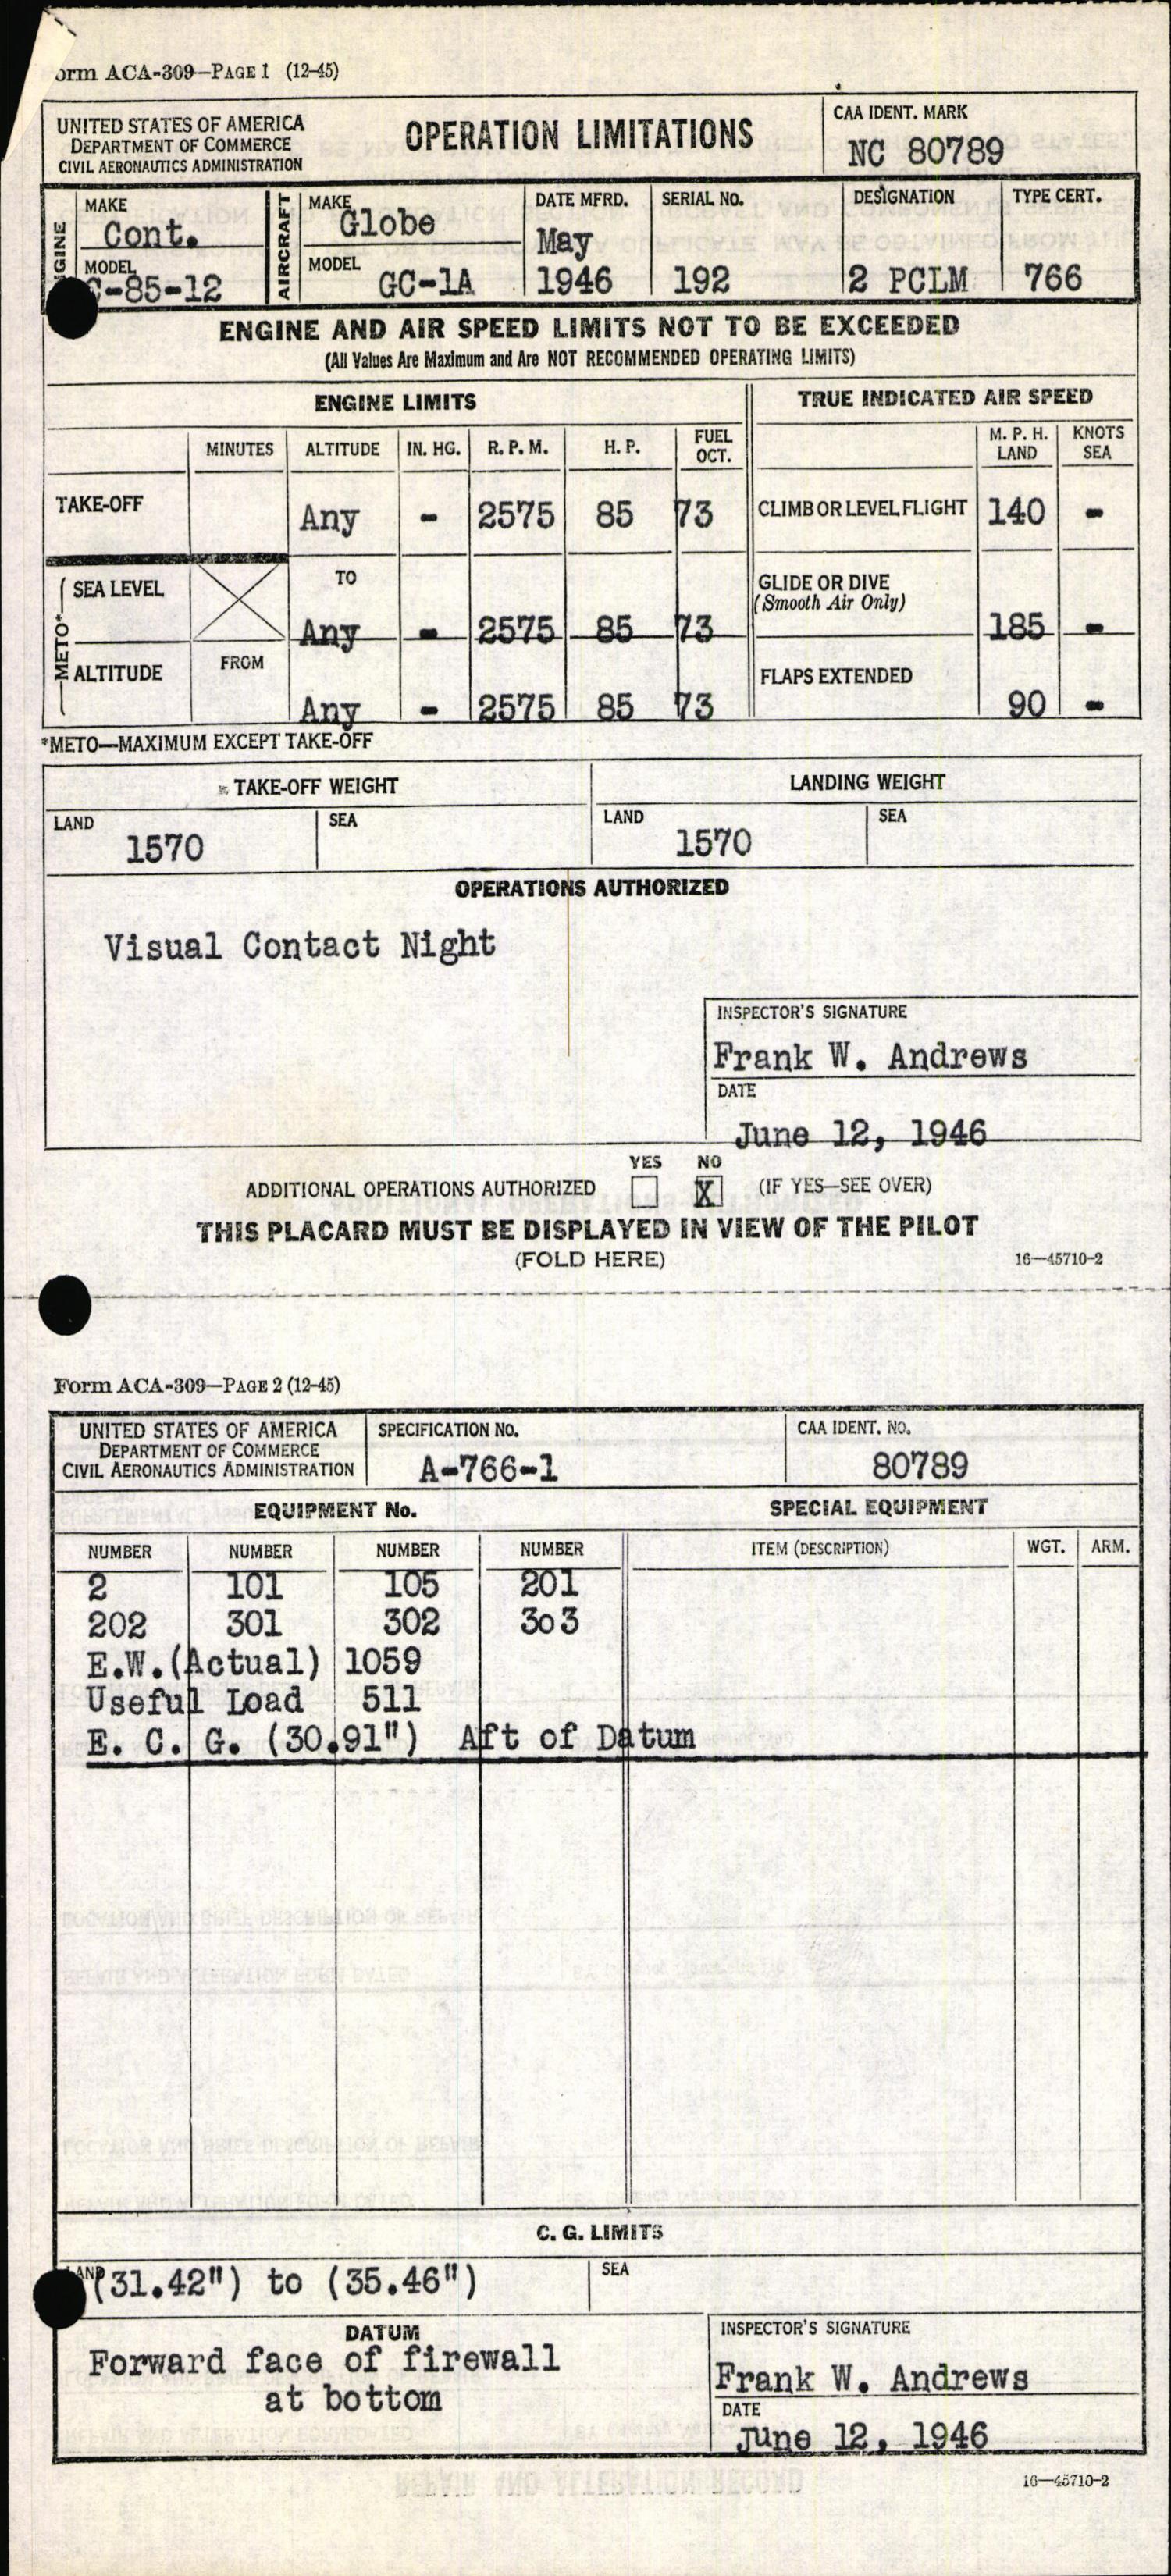 orm ACA-309—PAGE 1 (12-45)
UNITED STATES OF AMERICA
DEPARTMENT OF COMMERCE
CIVIL AERONAUTICS ADMINISTRATION
OPERATION LIMITATIONS
CAA IDENT. MARK
NC 80789
NGINE
MAKE
Cont.
MODEL
C-85-12
AIRCRAFT
MAKE
Globe
MODEL
GC-1A
DATE MFRD.
May
1946
SERIAL NO.
192
DESIGNATION
2 PCLM
TYPE CERT.
766
ENGINE AND AIR SPEED LIMITS NOT TO BE EXCEEDED
(All Values Are Maximum and Are NOT RECOMMENDED OPERATING LIMITS)
ENGINE LIMITS
TRUE INDICATED AIR SPEED
MINUTES ALTITUDE IN. HG. R. P. M. H. P. FUEL OCT.
M. P. H. LAND KNOTS SEA
TAKE-OFF Any - 2575 85 73
CLIMB OR LEVEL FLIGHT 140 -
METO*
SEA LEVEL TO
Any - 2575 85 73
GLIDE OR DIVE
(Smooth Air Only)
185 -
ALTITUDE FROM
Any - 2575 85 73
FLAPS EXTENDED
90 -
*METO—MAXIMUM EXCEPT TAKE-OFF
TAKE-OFF WEIGHT LANDING WEIGHT
LAND SEA LAND SEA
1570 1570
OPERATIONS AUTHORIZED
Visual Contact Night
INSPECTOR'S SIGNATURE
Frank W. Andrews
DATE
June 12, 1946
YES NO
ADDITIONAL OPERATIONS AUTHORIZED X (IF YES—SEE OVER)
THIS PLACARD MUST BE DISPLAYED IN VIEW OF THE PILOT
(FOLD HERE) 16—45710-2
Form ACA-309—PAGE 2 (12-45)
UNITED STATES OF AMERICA
DEPARTMENT OF COMMERCE
CIVIL AERONAUTICS ADMINISTRATION
SPECIFICATION NO.
A-766-1
CAA IDENT. NO.
80789
EQUIPMENT No. SPECIAL EQUIPMENT
NUMBER NUMBER NUMBER NUMBER ITEM (DESCRIPTION) WGT. ARM.
2 101 105 201
202 301 302 303
E.W.(Actual) 1059
Useful Load 511
E. C. G. (30.91") Aft of Datum
C. G. LIMITS
LAND
(31.42") to (35.46")
SEA
DATUM
Forward face of firewall
at bottom
INSPECTOR'S SIGNATURE
Frank W. Andrews
DATE
June 12, 1946
16—45710-2